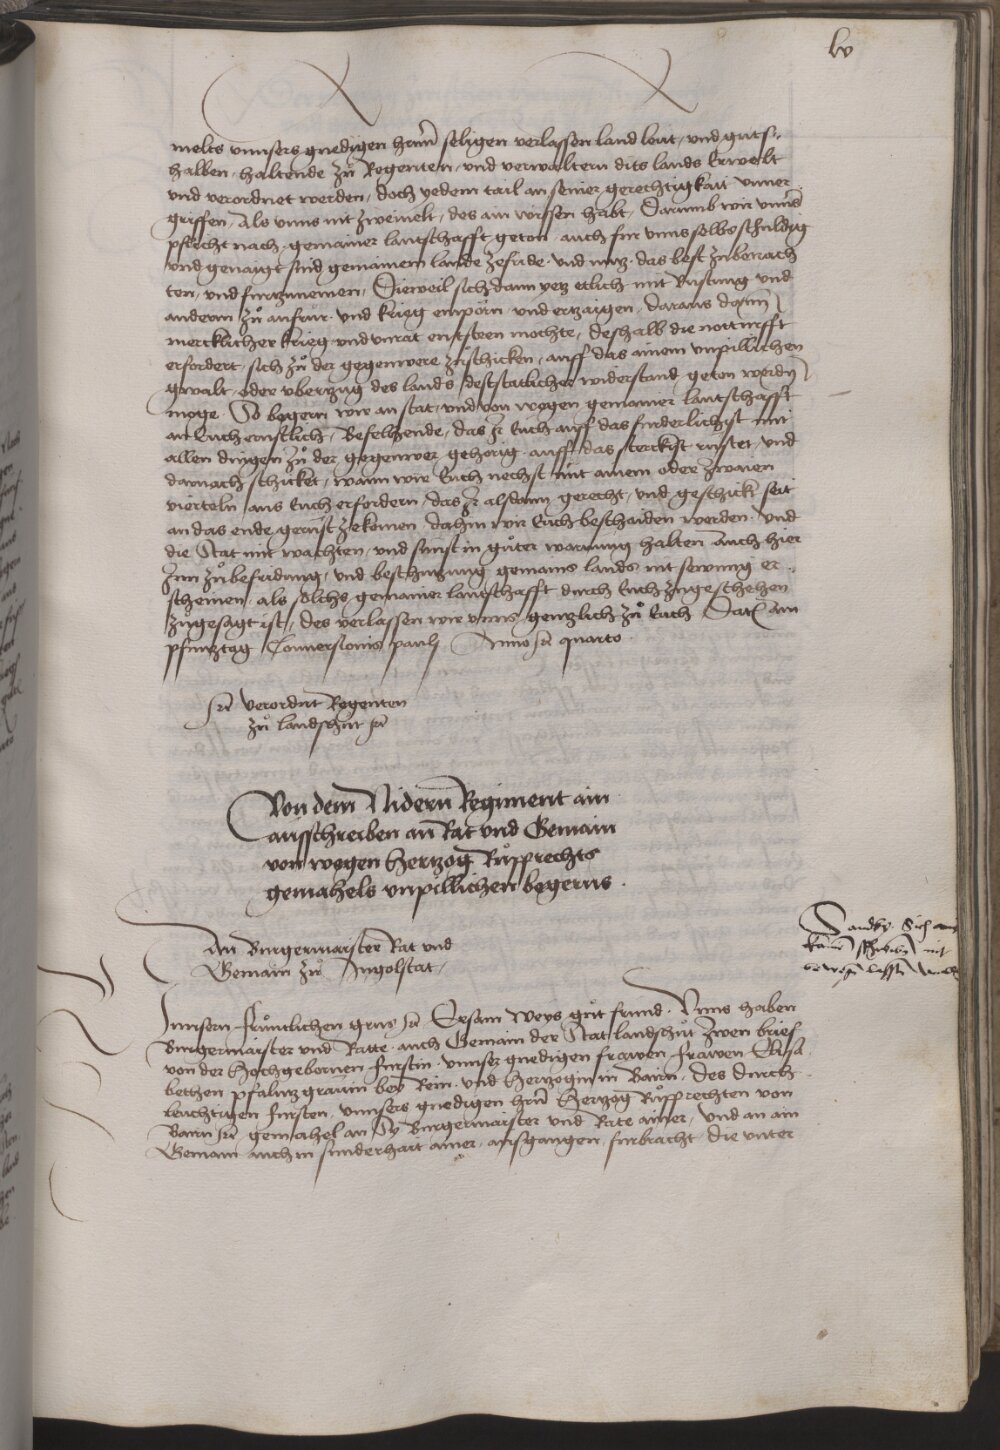 lv
melts vnnsers gnedigen herrn seligen verlassen land leut, vnd guts,
halben, haltende zů Regenten, vnd verwaltern dits lands Erwelt
vnd verordnet werden, doch yedem tail an seiner gerechtigkait vnuer
griffen, Als vnns nit zweiuelt, des ain wissen habt, Darumb wir vnnser
pflicht nach, gemainer lantschafft geton, auch fur vnns selbs schuldig
vnd genaigt sind gemainem lannde zefride, vnd nutz, das best zubetrach
ten, vnd furtzunemen, Dieweil sich dann yetz etlich mit Rustung vnd
anderm zů aufrůr, vnd krieg emporn, vnd ertzaigen, daraus dann
mercklicher krieg, vnd vnrat entsteen mochte, deshalb die notturfft
erfordert, sich zů der gegenwere zuschicken, auff das ainem vnpillichen
gwalt, oder vbertzug des lands, deststatlicher widerstand, geton werden
moge, So begern wir an stat, vnd von wegen gemainer lantschafft
an Euch ernstlich, Befelhende, das Ir Euch auff das furderlichist mit
allen dingen zů der gegenwer gehorig, auff das sterckist rustet, vnd
darnach schicket, wann wir Euch nechst mit ainem oder zwaien
vierteln, aus Euch erfordern, das Ir alsdann gerecht, vnd geschickt seit
an das ende, gerust zekomen, dahin wir Euch beschaiden werden, Vnd
die Stat mit wachten, vnd sunst in gůter warnung halten Auch hier
Inn zů befridung, vnd beschutzung gemains lands nit sewmig er
scheinen, als solchs, gemainer lantschafft durch Euch zugeschehen
zůgesagt ist, des verlassen wir vnns, genntzlich zů Euch Dat am
pfintztag Conuersionis pauli Anno quarto
verordnt Regenten
zů landshut
Von dem Nidern Regiment ain
ausschreiben an Rat vnd Gemain
von wegen Hertzog Růpprechts
gemahels vnpillichen begerns
An Burgermaister Rat vnd
Gemain zů Ingolstat,
Vnnsern frůntlichen grus Ersam Weys gůt frund, Vnns haben
Burgermaister vnd Ratte, auch Gemain der Stat landshůt zwen brief
von der Hochgebornen furstin, vnnser gnedigen frawen, frawen Elisa
bethen pfaltzgrauin bey Rein, vnd Hertzogin in Bairn, des durch
leuchtigen fursten, vnnsers gnedigen hern Hertzog Růpprechten von
Bairn gemahel an Sy Burgermaister vnd Rate ainer, vnd an ain
Gemain auch in sunderhait ainer, ausgangen, furbracht, die vnter